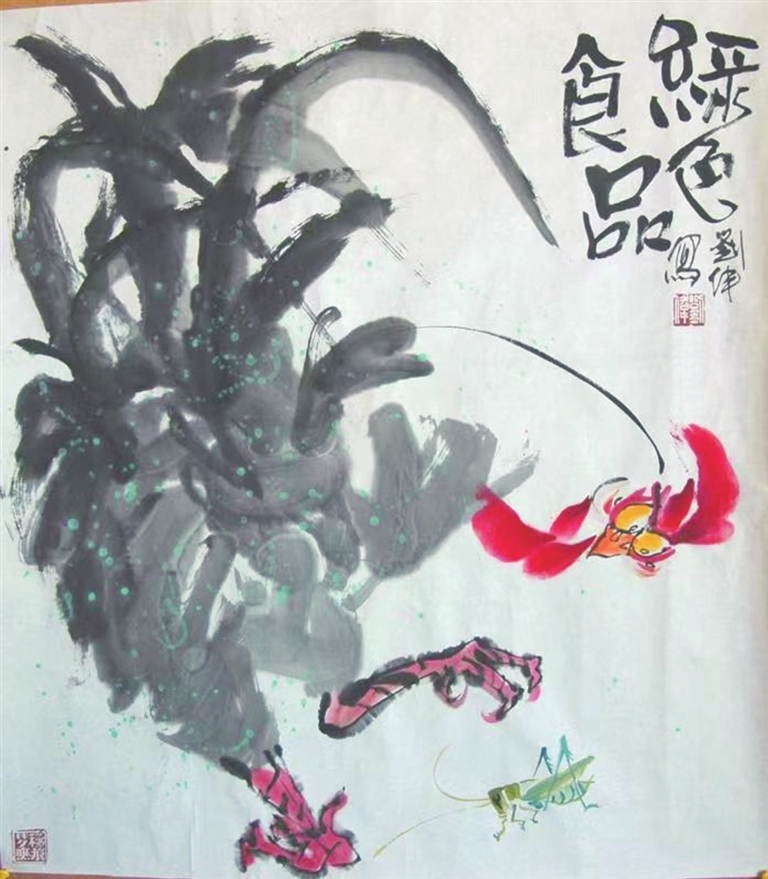 綠色
食品
劉偉
寫